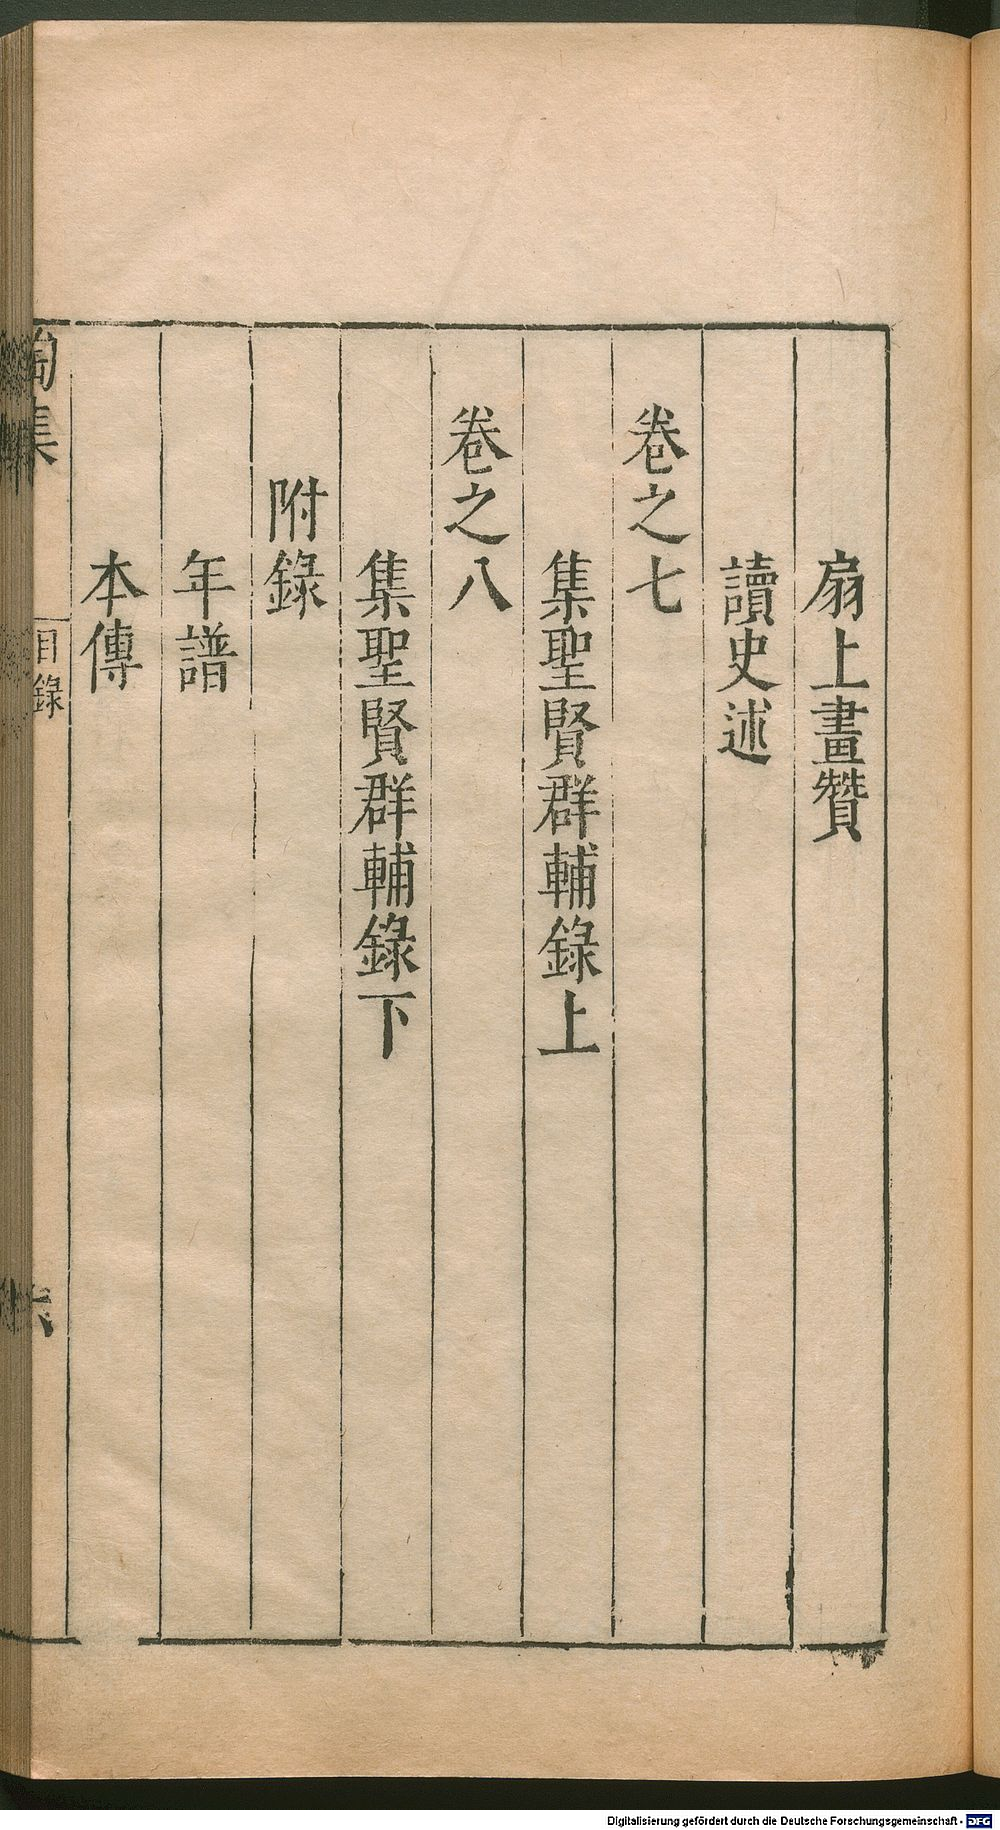 扇上畫贊
讀史述
卷之七
集聖賢群輔錄上
卷之八
集聖賢群輔錄下
附錄
年譜
本傳
陶集
目錄
六
Digitalisierung gefördert durch die Deutsche Forschungsgemeinschaft - DFG